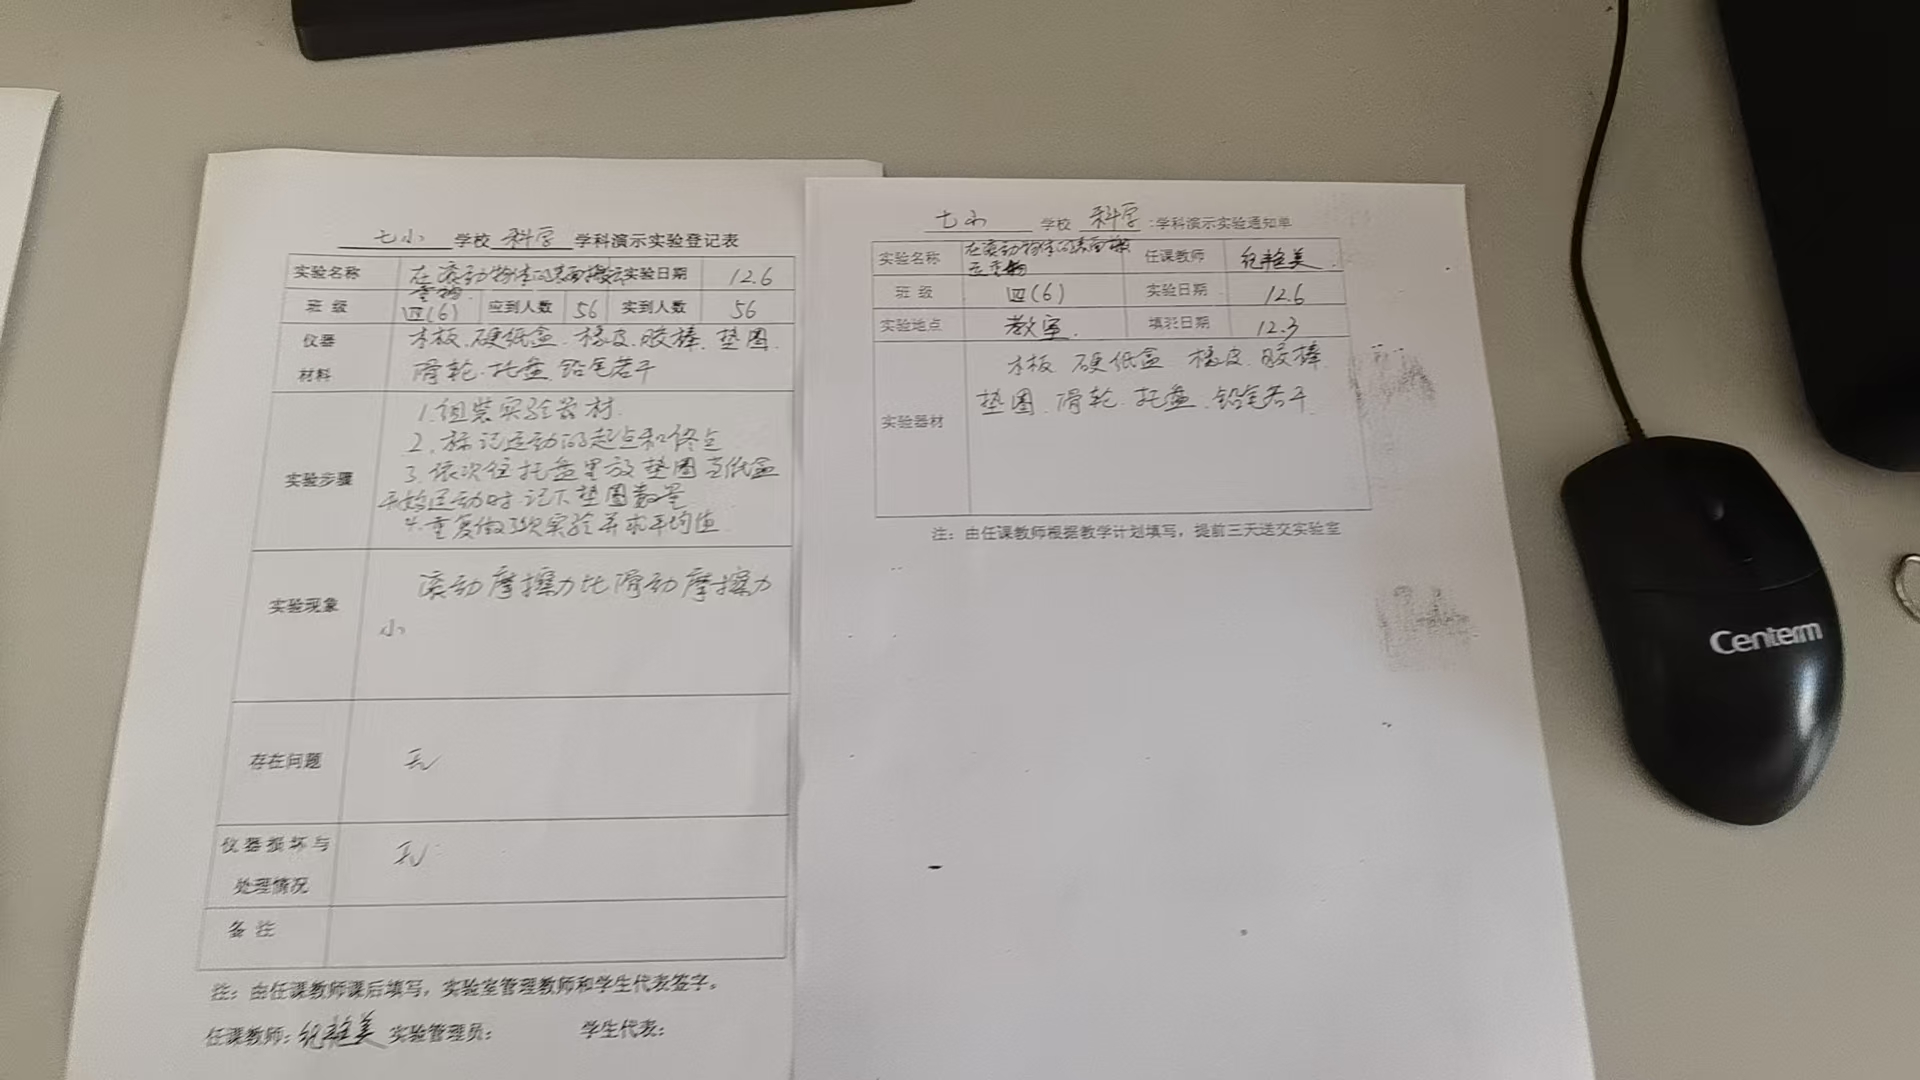 七小 学校 科学 学科演示实验登记表
实验名称 在滚动物体的表面搬运重物 实验日期 12.6
班 级 四(6) 应到人数 56 实到人数 56
仪器材料 木板.硬纸盒.橡皮.胶棒.垫圈.
滑轮.托盘.铅笔若干
实验步骤
1.组装实验器材.
2.标记运动的起点和终点
3.依次往托盘里放垫圈当纸盒
开始运动时.记下垫圈数量
4.重复做3次实验并求平均值
实验现象 滚动摩擦力比滑动摩擦力
小
存在问题 无
仪器损坏与处理情况 无
备 注
注：由任课教师课后填写，实验室管理教师和学生代表签字。
任课教师：纪艳美 实验管理员： 学生代表：
七小 学校 科学 学科演示实验通知单
实验名称 在滚动物体的表面搬运重物 任课教师 纪艳美.
班 级 四(6) 实验日期 12.6
实验地点 教室. 填表日期 12.3
实验器材 木板 硬纸盒 橡皮.胶棒
垫圈.滑轮.托盘.铅笔若干
注：由任课教师根据教学计划填写，提前三天送交实验室
Centerm